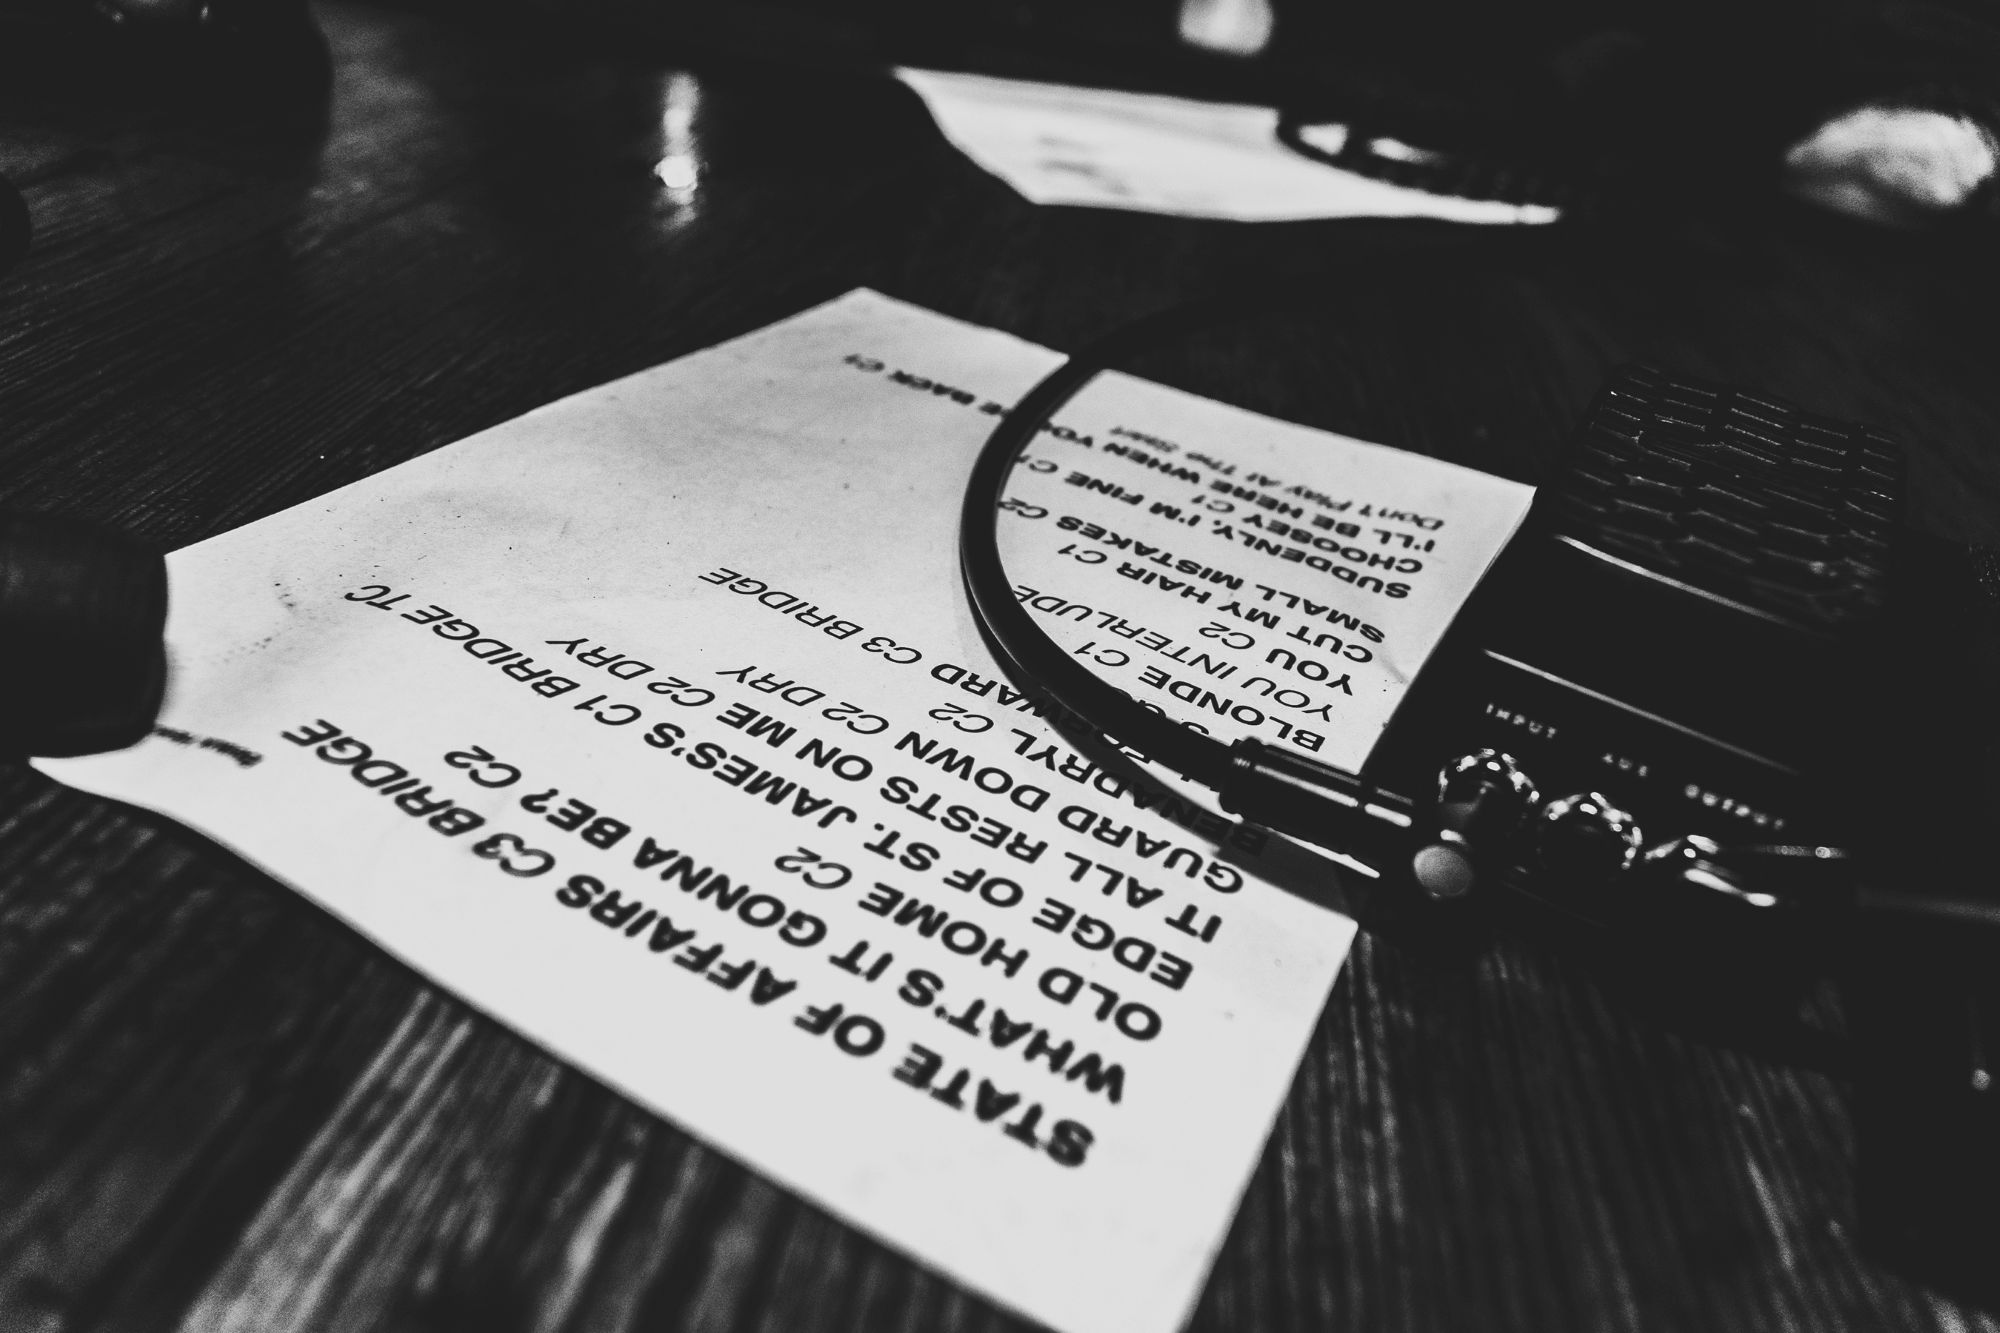 STATE OF AFFAIRS C3 BRIDGE
WHAT'S IT GONNA BE? C2
OLD HOME C2
EDGE OF ST. JAMES'S C1 BRIDGE TC
IT ALL RESTS ON ME C2 DRY
GUARD DOWN C2 DRY
BENADRYL C2
FORWARD C3 BRIDGE
BLONDE C1
YOU INTERLUDE
YOU C2
CUT MY HAIR C1
SMALL MISTAKES C2
SUDDENLY, I'M FINE C1
CHOOSEY C1
I'LL BE HERE WHEN YOU BACK C1
Don't Play At The Start